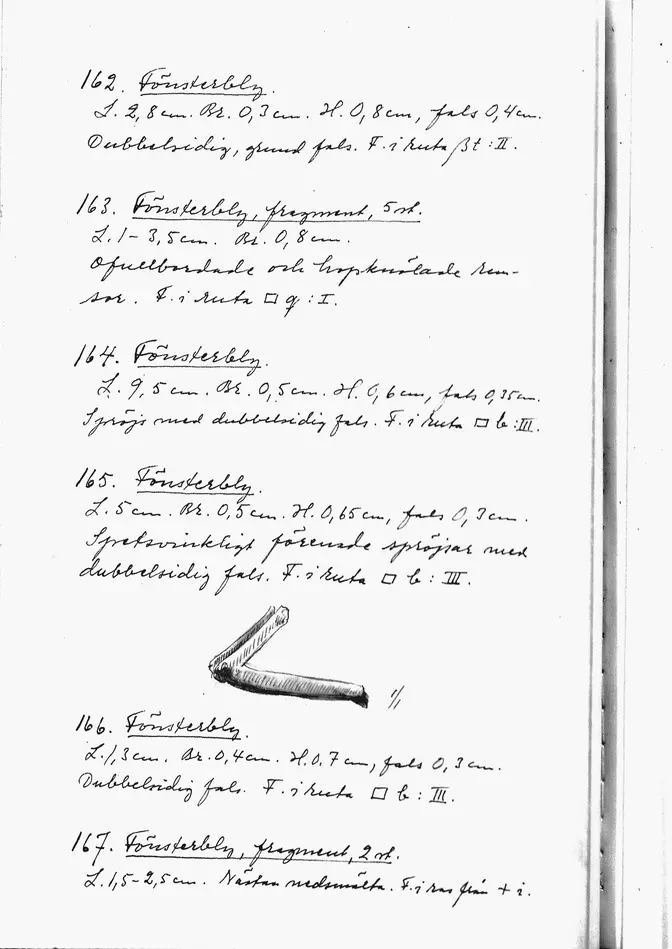 162. Fönsterbly.
L. 2,8 cm. Br. 0,3 cm. H. 0,8 cm, fals 0,4 cm.
Dubbelsidig, grund fals. F. i ruta βt : II.
163. Fönsterbly, fragment, 5 st.
L. 1 – 3,5 cm. Br. 0,8 cm.
Ofullbordade och hopknölade rem-
sor. F. i ruta □ q : I.
164. Fönsterbly.
L. 9,5 cm. Br. 0,5 cm. H. 0,6 cm, fals 0,35 cm.
Spröjs med dubbelsidig fals. F. i ruta □ b : III.
165. Fönsterbly.
L. 5 cm. Br. 0,5 cm. H. 0,65 cm, fals 0,3 cm.
Spetsvinkligt förenade spröjsar med
dubbelsidig fals. F. i ruta □ b : III.
1/1
166. Fönsterbly.
L. 1,3 cm. Br. 0,4 cm. H. 0.7 cm, fals 0,3 cm.
Dubbelsidig fals. F. i ruta □ b : III.
167. Fönsterbly, fragment, 2 st.
L. 1,5–2,5 cm. Nästan nedsmälta. F. i ras från + i.